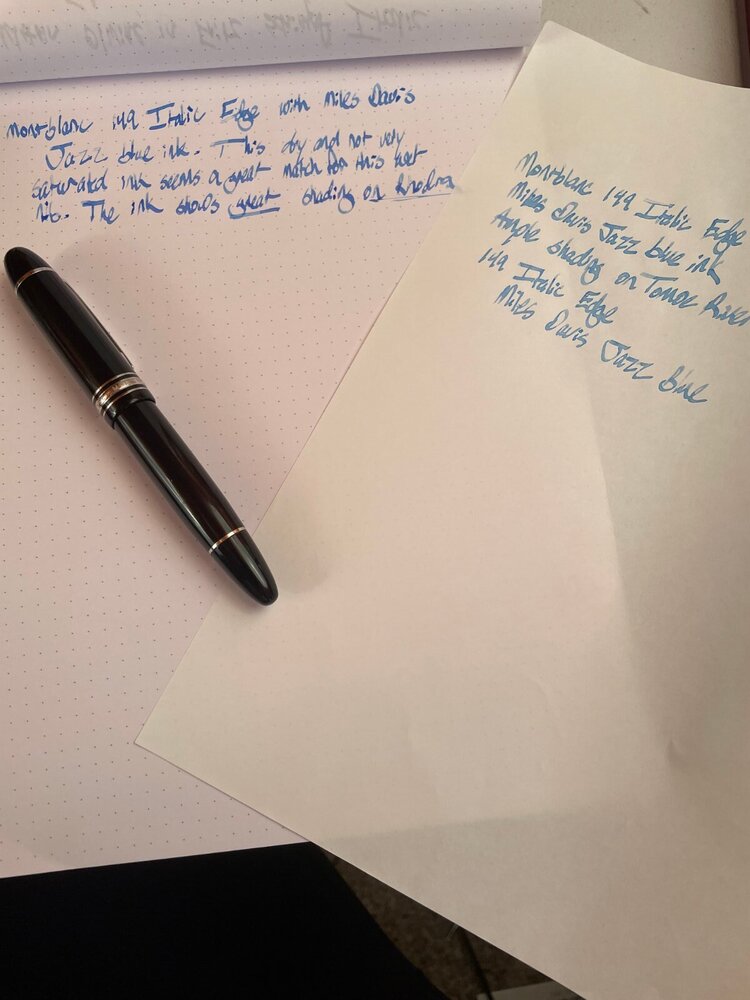 Montblanc 149 Italic Edge with Miles Davis
Jazz blue ink. This dry and not very
saturated ink seems a great match for this wet
nib. The ink shows great shading on Rhodia
Montblanc 149 Italic Edge
Miles Davis Jazz blue ink
Ample shading on Tomoe River
149 Italic Edge
Miles Davis Jazz blue